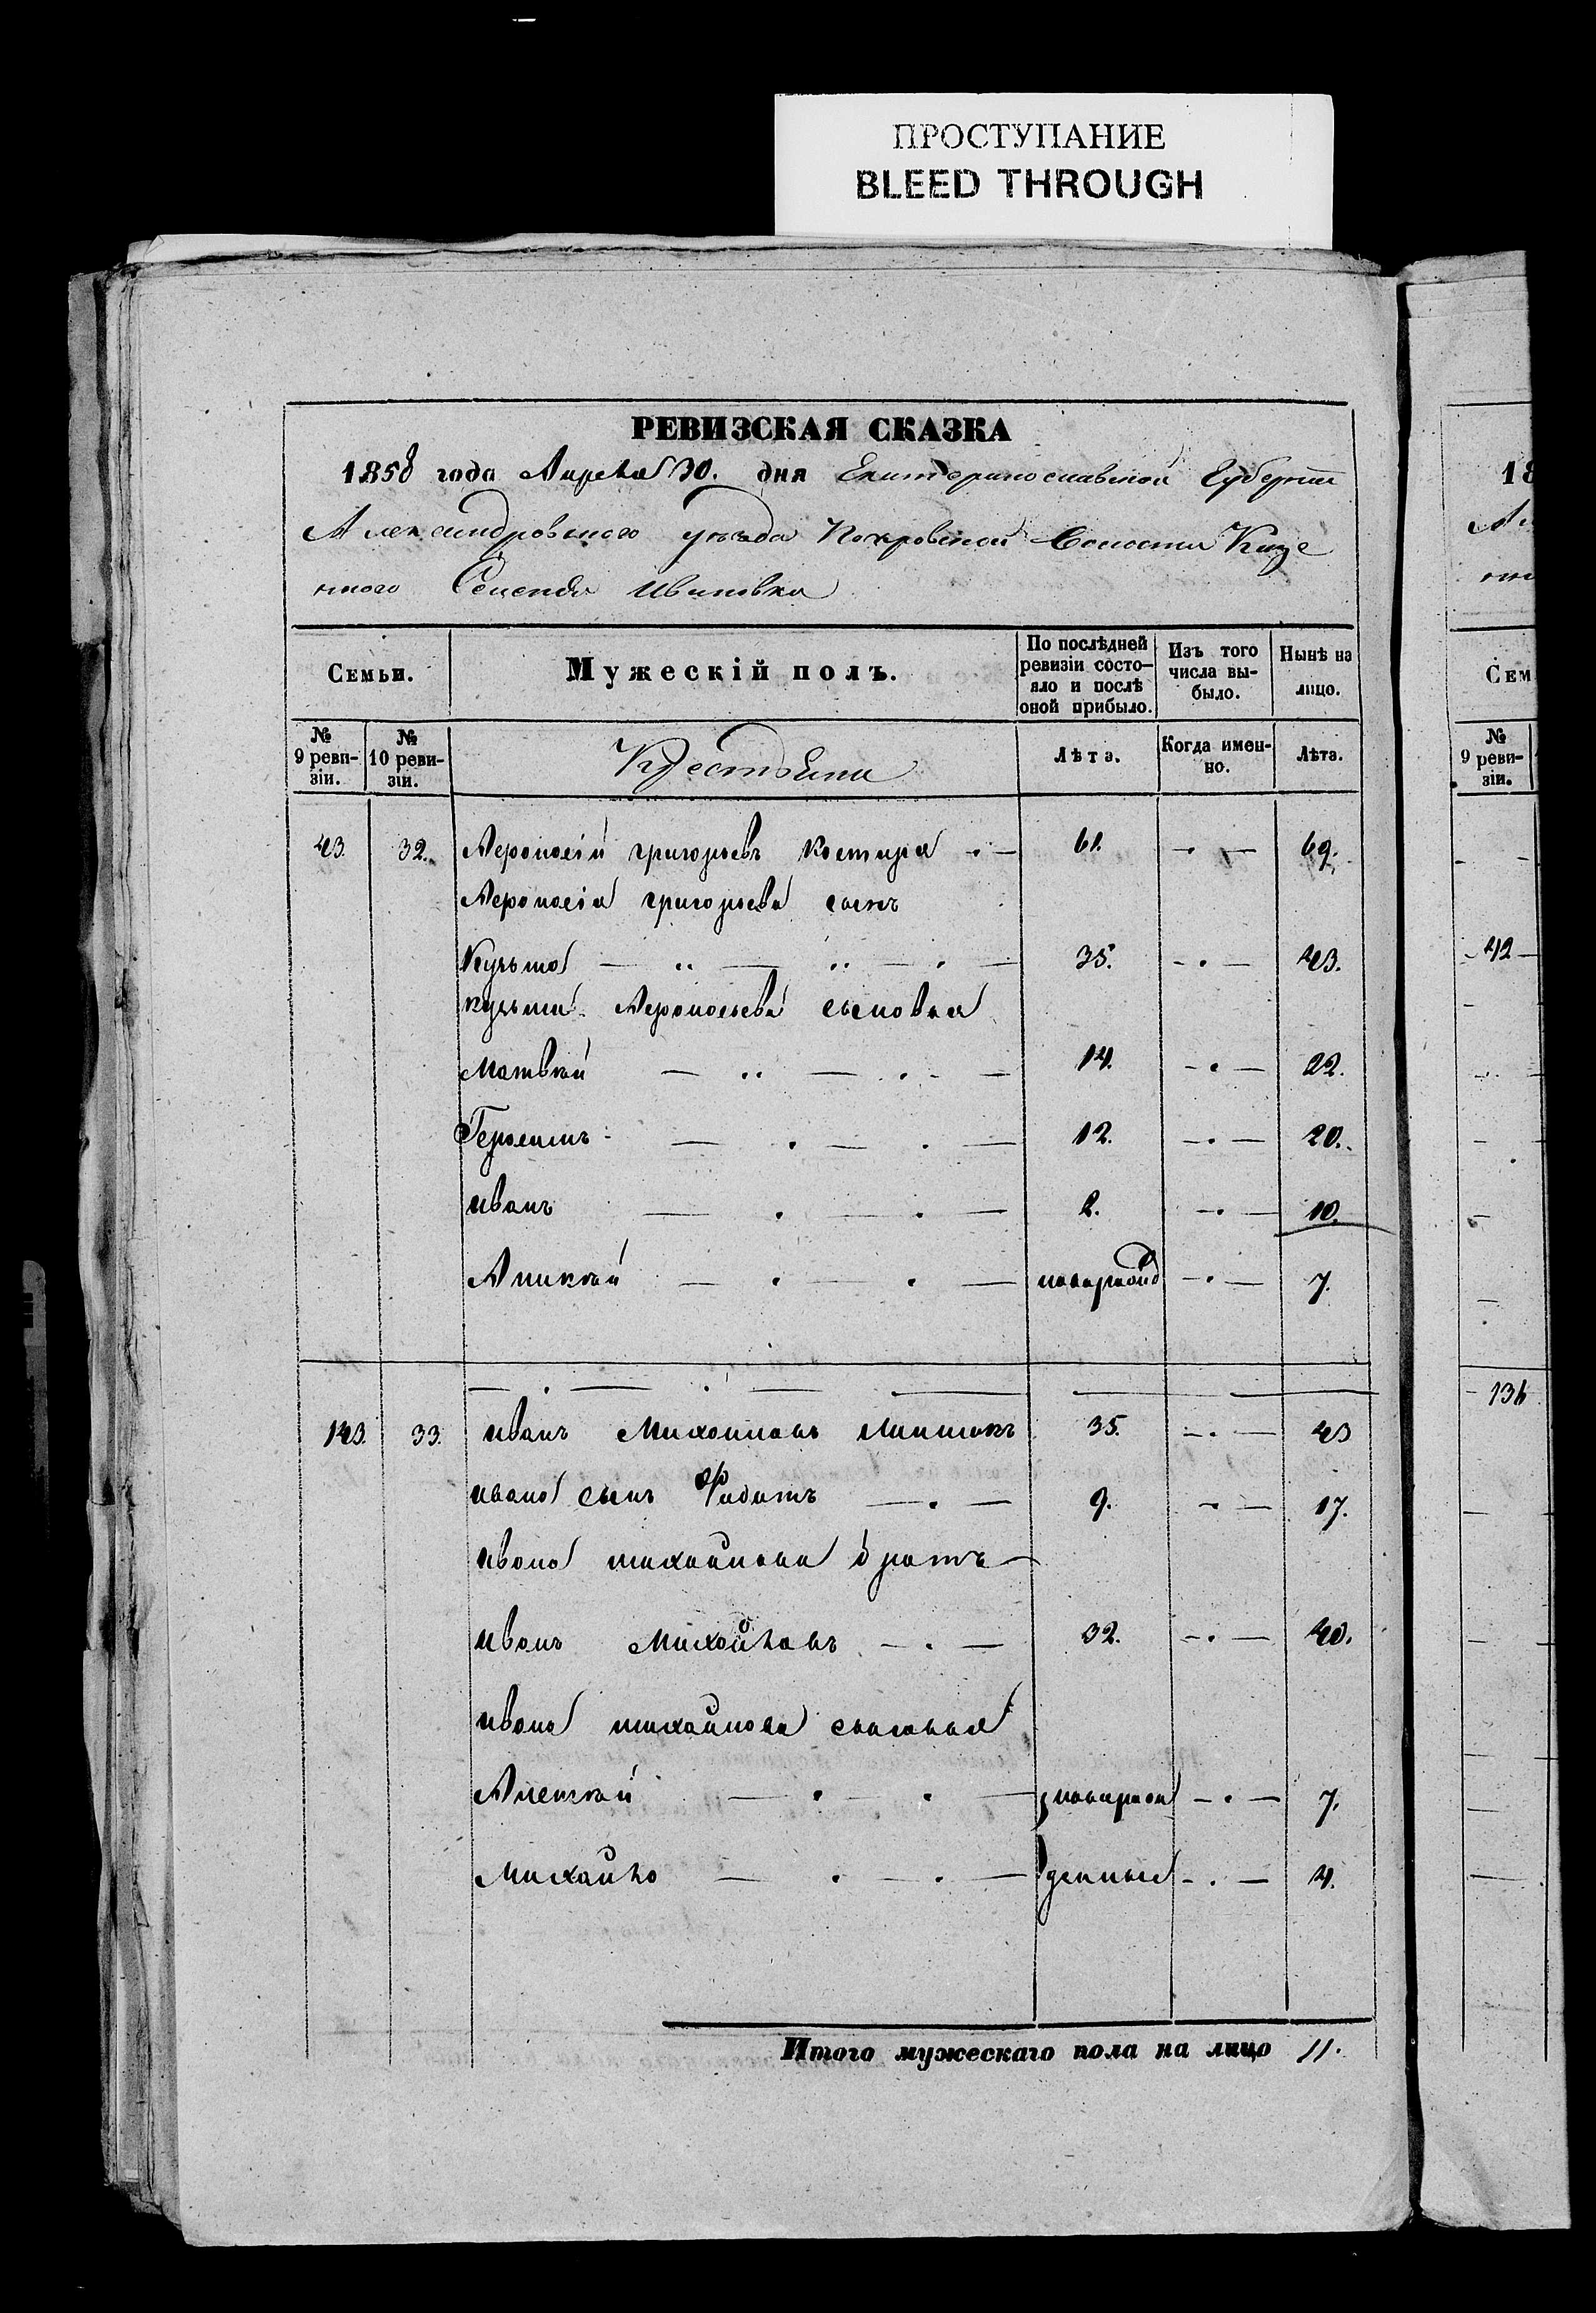 ПРОСТУПАНИЕ
BLEED THROUGH
РЕВИЗСКАЯ СКАЗКА
1858 года Апреля 30. дня Екатеринославской Губернии
Александровского уезда Покровской Волости Казе
нного Селения Ивановка
Семьи.
Мужескій полъ.
По послѣдней ревизіи состо- яло и послѣ оной прибыло.
Изъ того числа вы- было.
Нынѣ на лицо.
№ 9 реви- зіи.
№ 10 реви- зіи.
Крестьяни
Лѣта.
Когда имен- но.
Лѣта.
43. 32. григорьевъ Костыра 61. 69.
григорьева сынъ
Кузьма 35. 43.
Кузьми сыновья
Матвѣй 14. 22.
Герасимъ 12. 20.
иванъ 2. 10.
Аникѣй новорожд 7.
143. 33. иванъ Михайловъ 35. 43
ивана сынъ 9. 17.
ивана михайлова братъ
иванъ Михайловъ 32. 40.
ивана михайлова сыновья
Алексѣй новорож 7.
Михайло денные 4.
Итого мужескаго пола на лицо 11.
18
Сем
№ 9 реви- зіи.
42
136